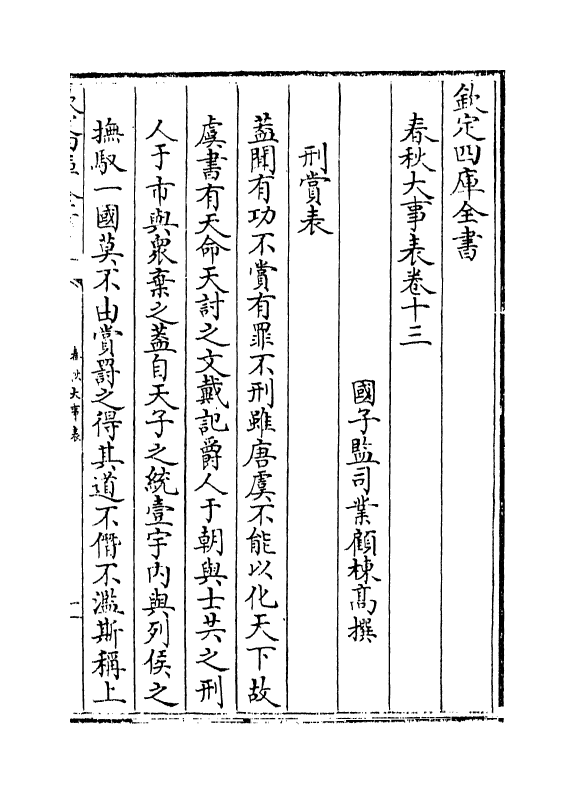 欽定四庫全書
春秋大事表卷十三
國子監司業顧棟高撰
刑賞表
蓋聞有功不賞有罪不刑雖唐虞不能以化天下故
虞書有天命天討之文戴記爵人于朝與士共之刑
人于市與衆棄之蓋自天子之統壹宇內與列侯之
撫馭一國莫不由賞罰之得其道不僭不濫斯稱上
春秋大事表
一